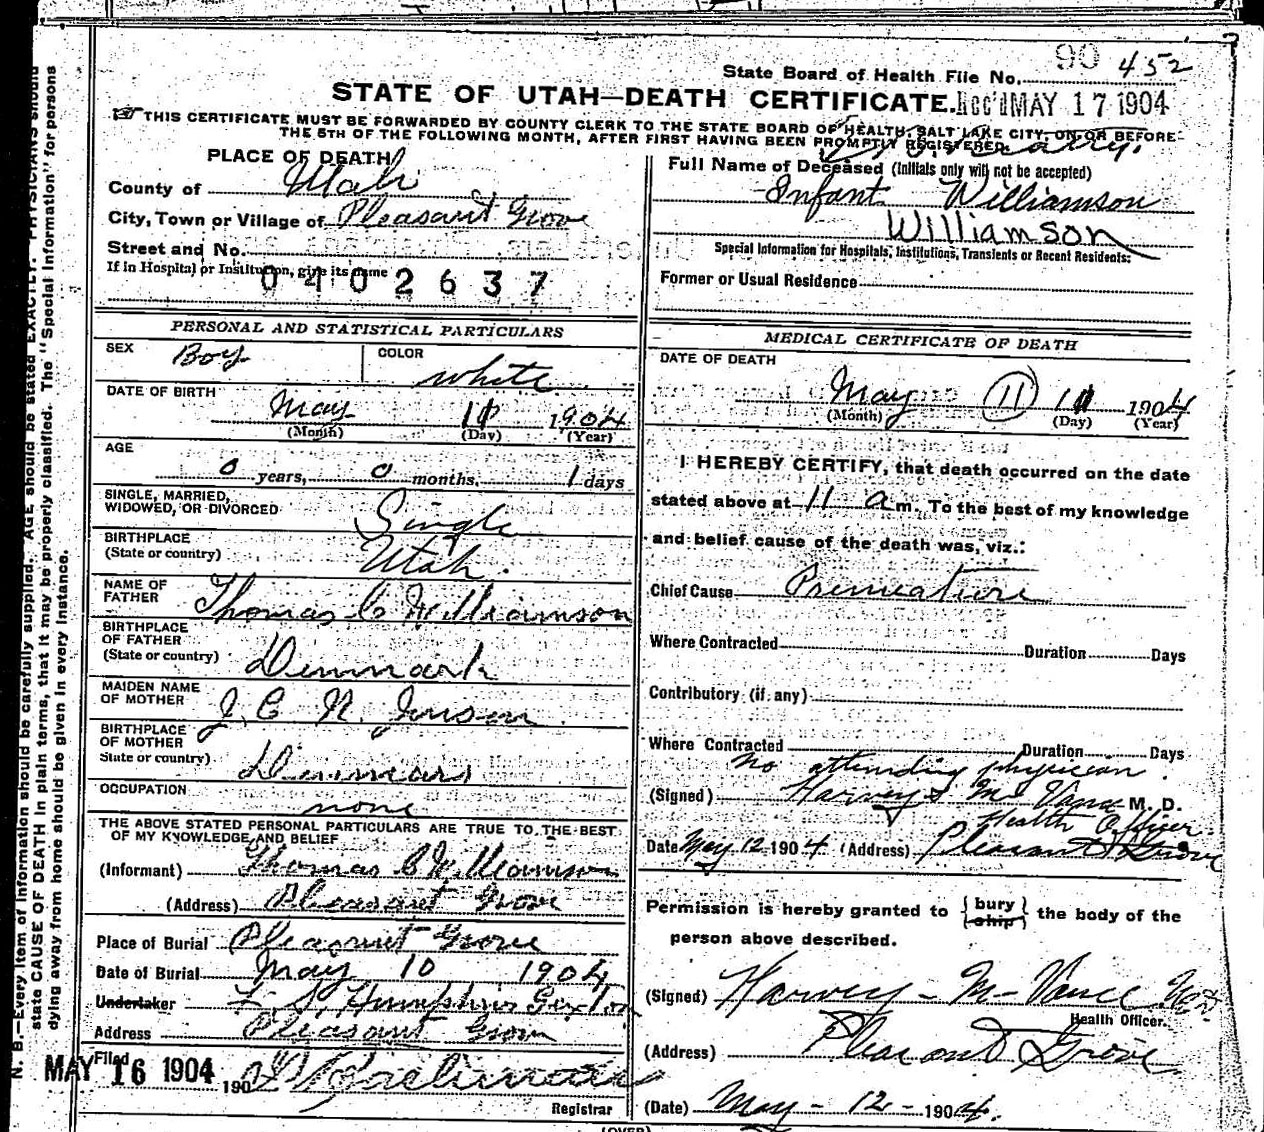 State Board of Health File No. 90 452
STATE OF UTAH—DEATH CERTIFICATE. Rec'd MAY 17 1904
THIS CERTIFICATE MUST BE FORWARDED BY COUNTY CLERK TO THE STATE BOARD OF HEALTH, SALT LAKE CITY, ON OR BEFORE
THE 5TH OF THE FOLLOWING MONTH, AFTER FIRST HAVING BEEN PROMPTLY REGISTERED.
PLACE OF DEATH
County of Utah
City, Town or Village of Pleasant Grove
Street and No.
If in Hospital or Institution, give its name
0402637
Full Name of Deceased (Initials only will not be accepted)
Infant Williamson
Williamson
Special Information for Hospitals, Institutions, Transients or Recent Residents:
Former or Usual Residence
PERSONAL AND STATISTICAL PARTICULARS
SEX Boy COLOR white
DATE OF BIRTH
May 11 1904
(Month) (Day) (Year)
AGE
0 years, 0 months, 1 days
SINGLE, MARRIED,
WIDOWED, OR DIVORCED Single
BIRTHPLACE
(State or country) Utah.
NAME OF
FATHER Thomas C Williamson
BIRTHPLACE
OF FATHER
(State or country) Denmark
MAIDEN NAME
OF MOTHER J. C. N. Jenson
BIRTHPLACE
OF MOTHER
State or country) Denmark
OCCUPATION
none
THE ABOVE STATED PERSONAL PARTICULARS ARE TRUE TO THE BEST
OF MY KNOWLEDGE AND BELIEF
(Informant) Thomas C Williamson
(Address) Pleasant Grove
Place of Burial Pleasant Grove
Date of Burial May 10 1904
Undertaker Sexton
Address Pleasant Grove
Filed
MAY 16 1904 190
Registrar
MEDICAL CERTIFICATE OF DEATH
DATE OF DEATH
May 11 11 1904
(Month) (Day) (Year)
I HEREBY CERTIFY, that death occurred on the date
stated above at 11 a m. To the best of my knowledge
and belief cause of the death was, viz.:
Chief Cause Premature
Where Contracted Duration Days
Contributory (if any)
Where Contracted Duration Days
No attending physician
(Signed) Harvey Mc Vance M. D.
Health Officer
Date May 12 1904 (Address) Pleasant Grove
Permission is hereby granted to { bury / ship } the body of the
person above described.
(Signed) Harvey - M - Vance
Health Officer.
(Address) Pleasant Grove
(Date) May - 12 - 1904.
(OVER)
N. B.—Every item of information should be carefully supplied. AGE should be stated EXACTLY. PHYSICIANS should
state CAUSE OF DEATH in plain terms, that it may be properly classified. The "Special Information" for persons
dying away from home should be given in every instance.